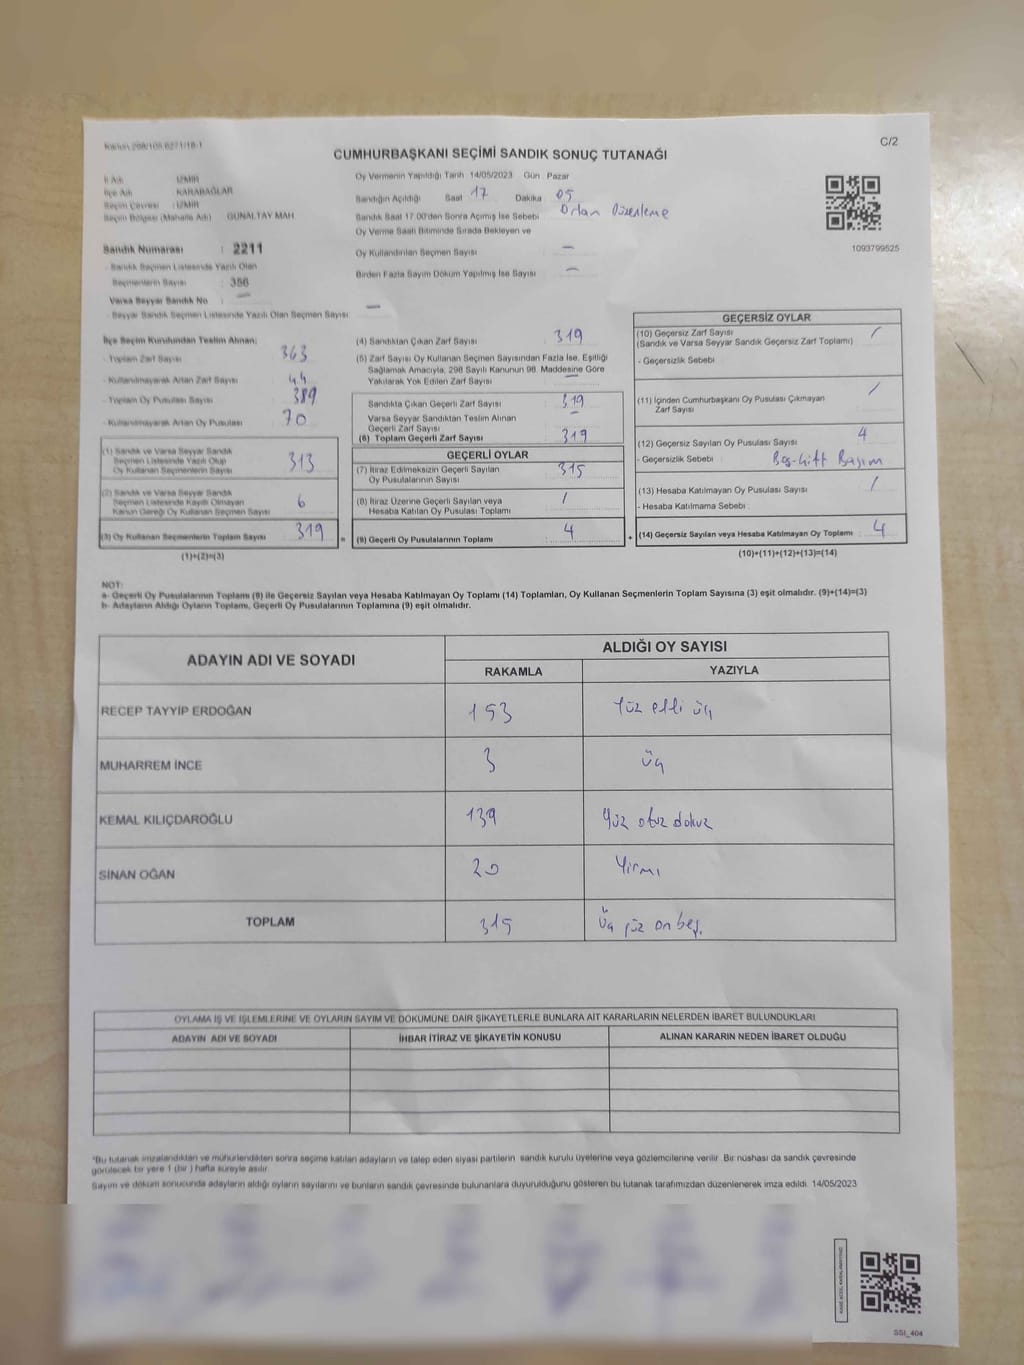 C/2
CUMHURBAŞKANI SEÇİMİ SANDIK SONUÇ TUTANAĞI
İl Adı : İZMİR
İlçe Adı : KARABAĞLAR
Seçim Çevresi : İZMİR
Seçim Bölgesi (Mahalle Adı) : GÜNALTAY MAH
Sandık Numarası : 2211
- Sandık Seçmen Listesinde Yazılı Olan
Seçmenlerin Sayısı : 356
Varsa Seyyar Sandık No : —
- Seyyar Sandık Seçmen Listesinde Yazılı Olan Seçmen Sayısı : —
Oy Vermenin Yapıldığı Tarih 14/05/2023 Gün Pazar
Sandığın Açıldığı Saat 17 Dakika 05
Sandık Saat 17:00'den Sonra Açılmış İse Sebebi Ortam Düzenleme
Oy Verme Saati Bitiminde Sırada Bekleyen ve
Oy Kullandırılan Seçmen Sayısı —
Birden Fazla Sayım Döküm Yapılmış İse Sayısı —
1093799525
İlçe Seçim Kurulundan Teslim Alınan:
- Toplam Zarf Sayısı 363
- Kullanılmayarak Artan Zarf Sayısı 44
- Toplam Oy Pusulası Sayısı 389
- Kullanılmayarak Artan Oy Pusulası 70
(1) Sandık ve Varsa Seyyar Sandık
Seçmen Listesinde Yazılı Olup
Oy Kullanan Seçmenlerin Sayısı 313
(2) Sandık ve Varsa Seyyar Sandık
Seçmen Listesinde Kayıtlı Olmayan
Kanun Gereği Oy Kullanan Seçmen Sayısı 6
(3) Oy Kullanan Seçmenlerin Toplam Sayısı 319 =
(1)+(2)=(3)
(4) Sandıktan Çıkan Zarf Sayısı 319
(5) Zarf Sayısı Oy Kullanan Seçmen Sayısından Fazla İse, Eşitliği
Sağlamak Amacıyla, 298 Sayılı Kanunun 98. Maddesine Göre
Yakılarak Yok Edilen Zarf Sayısı —
Sandıkta Çıkan Geçerli Zarf Sayısı 319
Varsa Seyyar Sandıktan Teslim Alınan
Geçerli Zarf Sayısı —
(6) Toplam Geçerli Zarf Sayısı 319
GEÇERLİ OYLAR
(7) İtiraz Edilmeksizin Geçerli Sayılan
Oy Pusulalarının Sayısı 315
(8) İtiraz Üzerine Geçerli Sayılan veya
Hesaba Katılan Oy Pusulası Toplamı /
(9) Geçerli Oy Pusulalarının Toplamı 4 +
GEÇERSİZ OYLAR
(10) Geçersiz Zarf Sayısı /
(Sandık ve Varsa Seyyar Sandık Geçersiz Zarf Toplamı)
- Geçersizlik Sebebi
(11) İçinden Cumhurbaşkanı Oy Pusulası Çıkmayan
Zarf Sayısı /
(12) Geçersiz Sayılan Oy Pusulası Sayısı 4
- Geçersizlik Sebebi : Boş-Çift Basım
(13) Hesaba Katılmayan Oy Pusulası Sayısı /
- Hesaba Katılmama Sebebi :
(14) Geçersiz Sayılan veya Hesaba Katılmayan Oy Toplamı : 4
(10)+(11)+(12)+(13)=(14)
NOT:
a- Geçerli Oy Pusulalarının Toplamı (9) ile Geçersiz Sayılan veya Hesaba Katılmayan Oy Toplamı (14) Toplamları, Oy Kullanan Seçmenlerin Toplam Sayısına (3) eşit olmalıdır. (9)+(14)=(3)
b- Adayların Aldığı Oyların Toplamı, Geçerli Oy Pusulalarının Toplamına (9) eşit olmalıdır.
ADAYIN ADI VE SOYADI ALDIĞI OY SAYISI
RAKAMLA YAZIYLA
RECEP TAYYİP ERDOĞAN 153 Yüz elli üç
MUHARREM İNCE 3 üç
KEMAL KILIÇDAROĞLU 139 Yüz otuz dokuz
SİNAN OĞAN 20 Yirmi
TOPLAM 315 Üç yüz on beş.
OYLAMA İŞ VE İŞLEMLERİNE VE OYLARIN SAYIM VE DÖKÜMÜNE DAİR ŞİKAYETLERLE BUNLARA AİT KARARLARIN NELERDEN İBARET BULUNDUKLARI
ADAYIN ADI VE SOYADI İHBAR İTİRAZ VE ŞİKAYETİN KONUSU ALINAN KARARIN NEDEN İBARET OLDUĞU
*Bu tutanak imzalandıktan ve mühürlendikten sonra seçime katılan adayların ve talep eden siyasi partilerin sandık kurulu üyelerine veya gözlemcilerine verilir. Bir nüshası da sandık çevresinde
görülecek bir yere 1 (bir) hafta süreyle asılır.
Sayım ve döküm sonucunda adayların aldığı oyların sayılarını ve bunların sandık çevresinde bulunanlara duyurulduğunu gösteren bu tutanak tarafımızdan düzenlenerek imza edildi. 14/05/2023
SSI_404